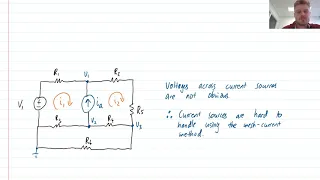 R₁
V₁
R₂
V₁
i₁
iₐ
i₂
R₅
R₃
V₂
R₄
V₃
R₆
Voltages across current sources
are not obvious.
∴ Current sources are hard to
handle using the mesh-current
method.